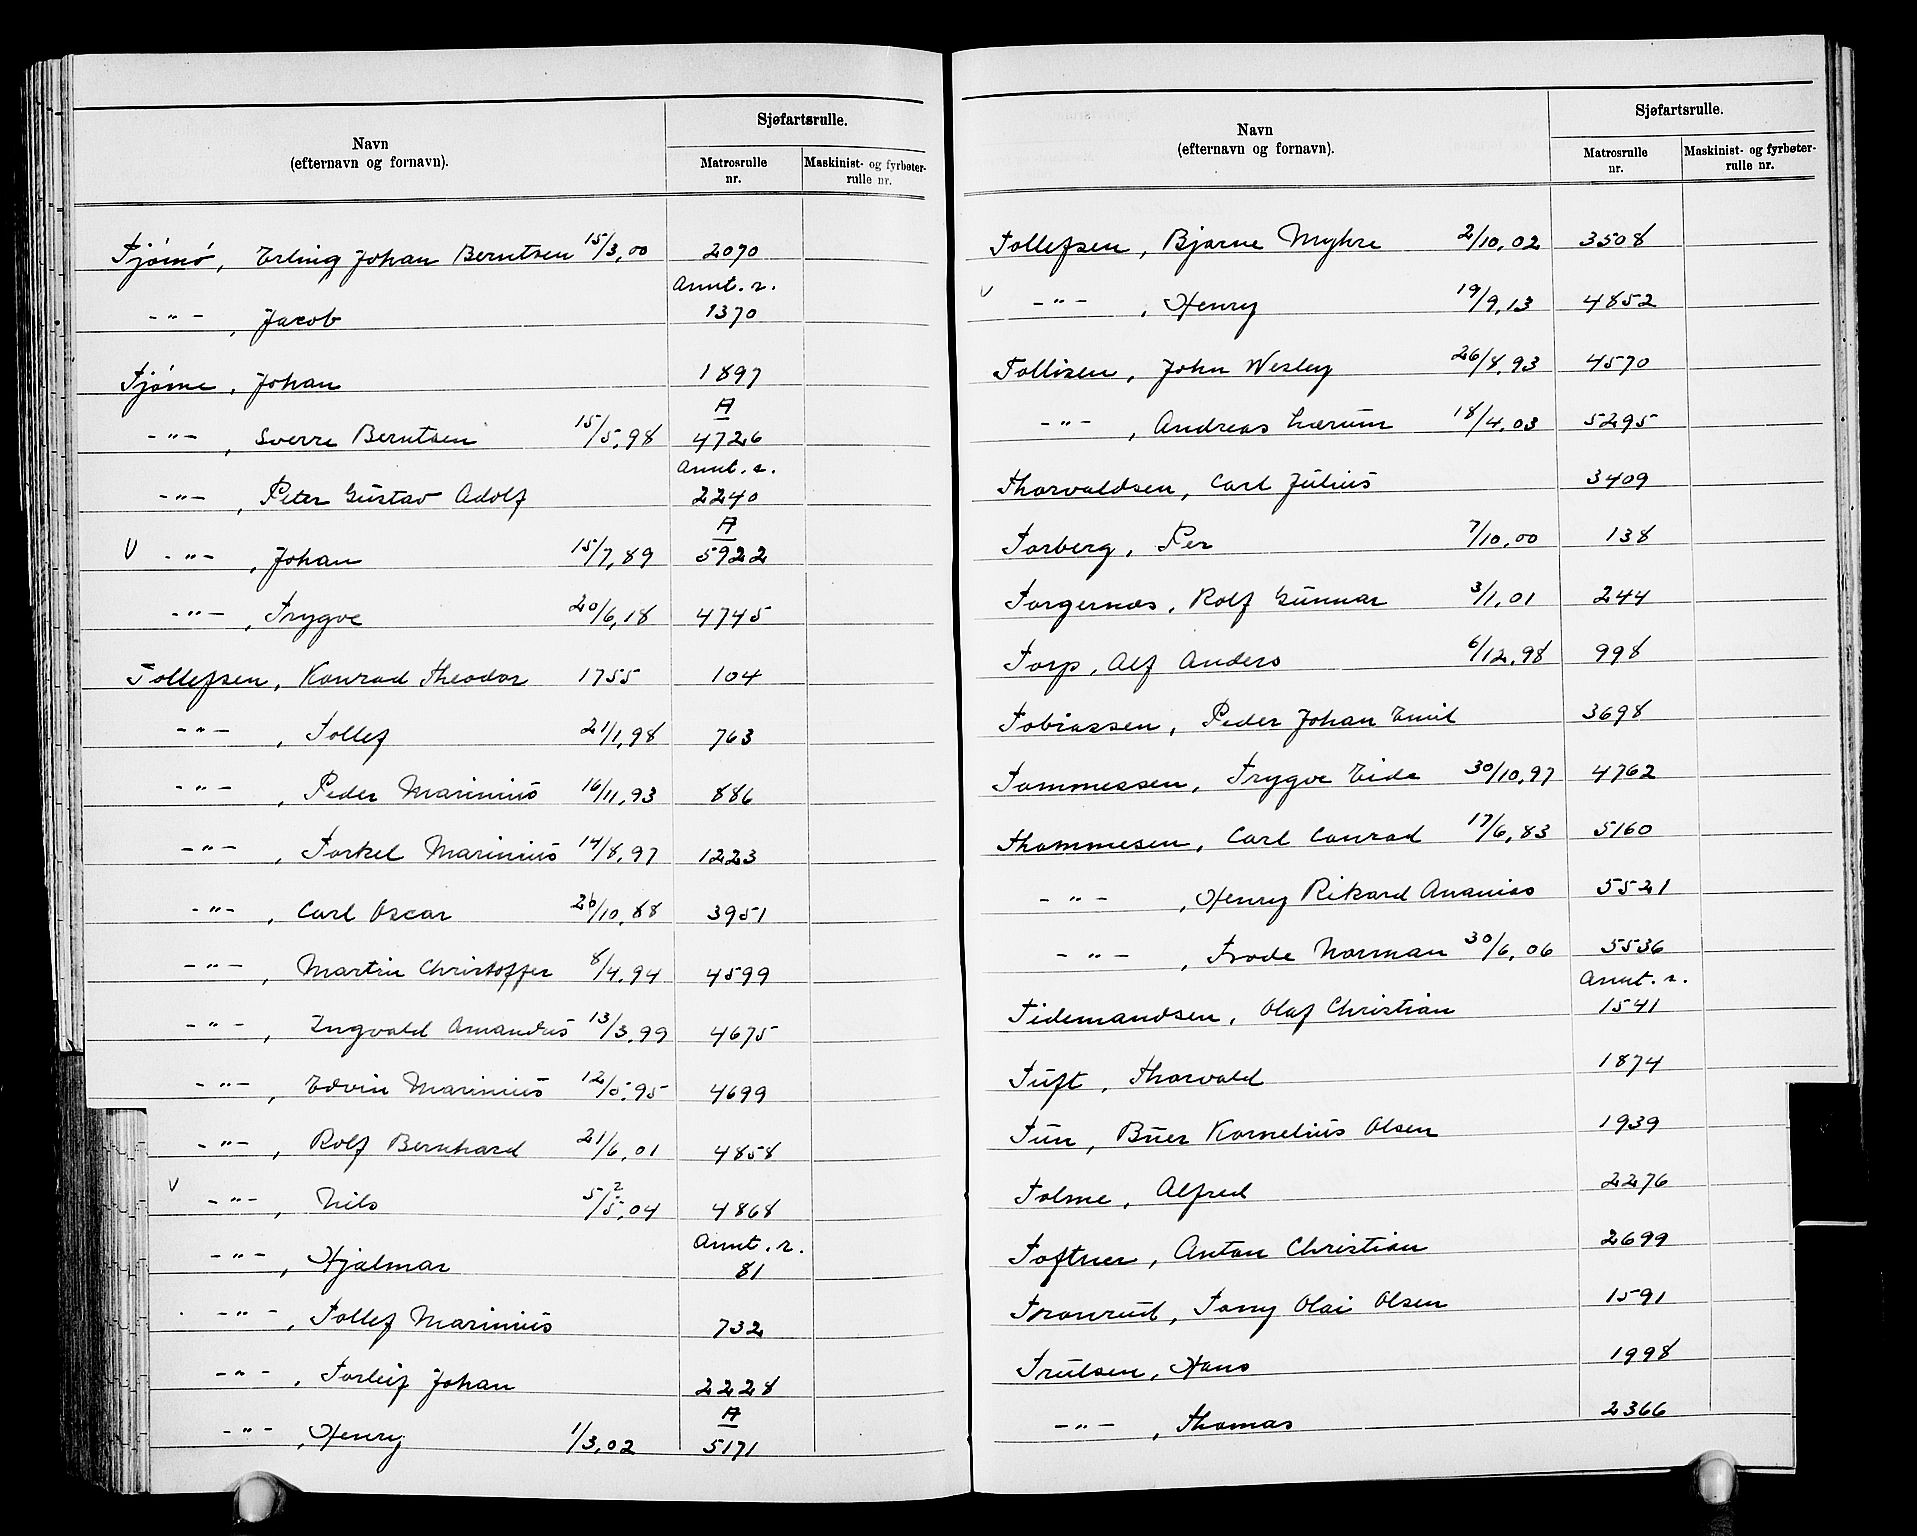 Navn
(efternavn og fornavn).
Sjøfartsrulle.
Matrosrulle
nr.
Maskinist- og fyrbøter-
rulle nr.
Tjømø, Erling Johan Berntsen 15/3,00 2070
Annt. r.
-"- , Jacob 1370
Tjøme, Johan 1897
A
-"- , Sverre Berntsen 15/5,98 4726
Annt. r.
-"- , Peter Gustav Adolf 2240
A
V -"- , Johan 15/7,89 5922
-"- , Trygve 20/6,18 4745
Tollefsen, Konrad Theodor 1755 104
-"- , Tollef 21/1,98 763
-"- , Peder Marinius 16/11,93 886
-"- , Torkel Marinius 14/8,97 1223
-"- , Carl Oscar 26/10,88 3951
-"- , Martin Christoffer 8/4,94 4599
-"- , Ingvald Amandus 13/3,99 4675
-"- , Edvin Marinius 12/5,95 4699
-"- , Rolf Bernhard 21/6,01 4858
V -"- , Nils 5/5,04 4868
Annt. r.
-"- , Hjalmar 81
-"- , Tollef Marinius 732
-"- , Torleif Johan 2228
A
-"- , Henry 1/3,02 5171
Navn
(efternavn og fornavn).
Sjøfartsrulle.
Matrosrulle
nr.
Maskinist- og fyrbøter-
rulle nr.
Tollefsen, Bjarne Myhre 2/10,02 3508
V -"- , Henry 19/9,13 4852
Tollisen, John Wesley 26/8,93 4570
-"- , Andreas Lærum 18/4,03 5295
Thorvaldsen, Carl Julius 3409
Torberg, Per 7/10,00 138
Torgernæs, Rolf Gunnar 3/1,01 244
Torp, Alf Anders 6/12,98 998
Tobiassen, Peder Johan Emil 3698
Tommessen, Trygve Eide 30/10,97 4762
Thommesen, Carl Conrad 17/6,83 5160
-"- , Henry Rikard Ananias 5521
-"- , Frode Norman 30/6,06 5536
Annt. r.
Tidemandsen, Olaf Christian 1541
Tuft, Thorvald 1874
Tun, Buer Kornelius Olsen 1939
Tolme, Alfred 2276
Toftner, Anton Christian 2699
Tronrud, Tony Olai Olsen 1591
Trulsen, Hans 1998
-"- , Thomas 2366